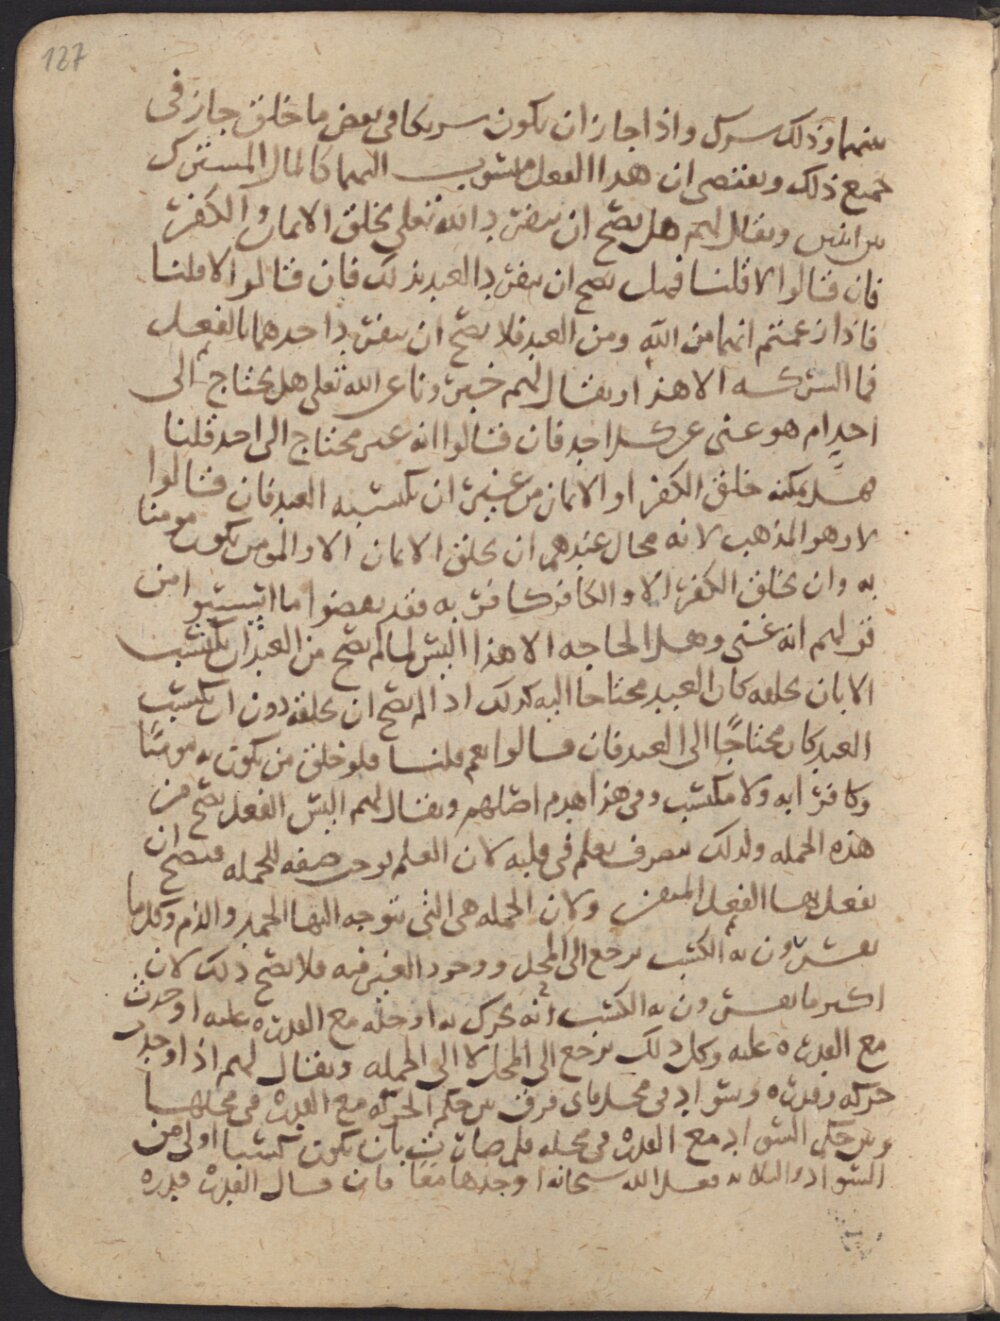 127
بينهما وذلك شرك واذا جاز ان يكون شريكا في بعض ما خلق جاز في
جميع ذلك ويقتضي ان هذا الفعل منسوب اليهما كالمال المشترك
بين اثنين ويقال لهم هل يصح ان يتفرد الله تعلى بخلق الايمان والكفر
فان قالوا لا قلنا فهل يصح ان يتفرد العبد بذلك فان قالوا لا قلنا
فاذا زعمتم انهما من الله ومن العبد فلا يصح ان يتفرد احدهما بالفعل
فما الشركه الا هذا ويقال لهم خبرونا عن الله تعلى هل يحتاج الى
احد ام هو غني عن كل احد فان قالوا انه غير محتاج الى احد قلنا
هل يمكنه خلق الكفر او الايمان من غير ان يكتسبه العبد فان قالوا
لا وهو المذهب لانه محال عندهم ان يخلق الايمان الا والمومن يكون مومنا
به وان يخلق الكفر الا والكافر كافر به فقد نقضوا ما اسسوا من
قولهم انه غني وهل الحاجه الا هذا اليس لما لم يصح من العبد ان يكتسب
الا بان يخلقه كان العبد محتاجا اليه كذلك اذا لم يصح ان يخلقه دون ان يكتسب
العبد كان محتاجا الى العبد فان قالوا نعم قلنا فلو خلق من يكون به مومنا
وكافرا به ولا مكتسب وفي هذا هدم اصلهم ويقال لهم اليس الفعل يصح من
هذه الجمله ولذلك يتصرف بعلم في قلبه لان العلم يوجب صفه للجمله فيصح ان
يفعل بها الفعل المتقن ولان الجمله هي التي يتوجه اليها الحمد والذم وكل ما
يفسرون به الكسب يرجع الى المحل ووجود الغير فيه فلا يصح ذلك لان
اكبر ما يفسرون به الكسب انه تحرك به او حله مع القدره عليه او حدث
مع القدره عليه وكل ذلك يرجع الى المحل لا الى الجمله ويقال لهم اذا اوجد
حركه وقدره وسواد في محل فاي فرق بين حكم الحركه مع القدره في محلها
وبين حكم السواد مع القدره في محله فلم صارت بان تكون كسبا اولى من
السواد والثلاثه فعل الله سبحانه اوجدها معا فان قال القدره قدره